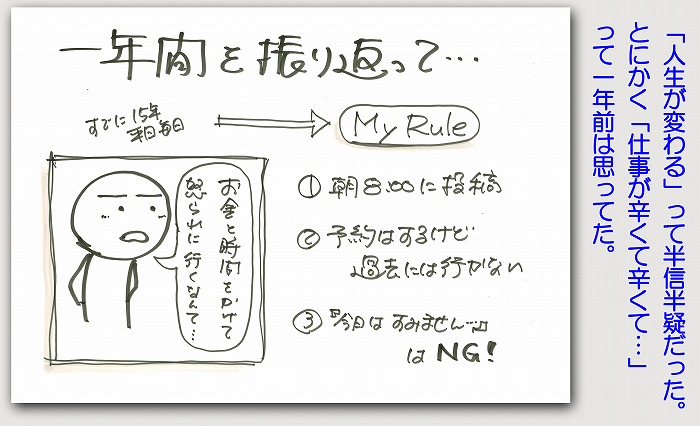 一年間を振り返って…
すでに15年
来日毎日
My Rule
お金と時間をかけて
怒られに行くなんて…
① 朝8:00に投稿
② 予約はするけど
過去には行かない
③ 『今日はすみません…』
はNG!
「人生が変わる」って半信半疑だった。
とにかく「仕事が辛くて辛くて…」
って一年前は思ってた。